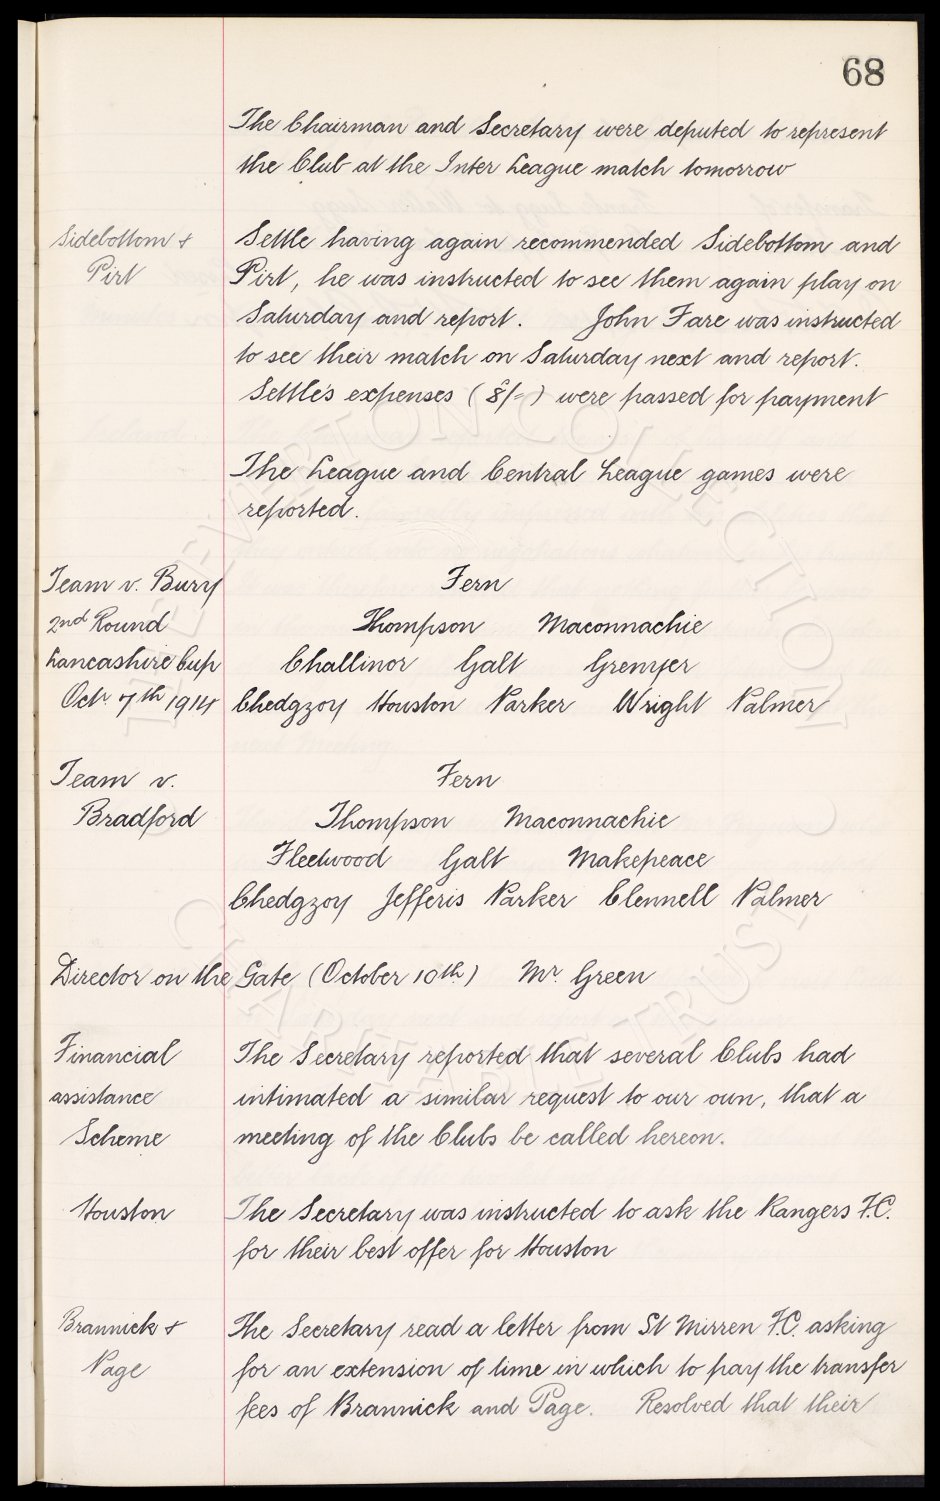 68
The Chairman and Secretary were deputed to represent
the Club at the Inter League match tomorrow
Sidebottom & Settle having again recommended Sidebottom and
Pirt Pirt, he was instructed to see them again play on
Saturday and report. John Fare was instructed
to see their match on Saturday next and report.
Settle's expenses (8/-) were passed for payment
The League and Central League games were
reported.
Team v. Bury Fern
2nd Round Thompson Maconnachie
Lancashire Cup Challinor Galt Grenyer
Oct. 7th 1914 Chedgzoy Houston Parker Wright Palmer
Team v. Fern
Bradford Thompson Maconnachie
Fleetwood Galt Makepeace
Chedgzoy Jefferis Parker Clennell Palmer
Director on the Gate (October 10th) Mr. Green
Financial The Secretary reported that several Clubs had
assistance intimated a similar request to our own, that a
Scheme meeting of the Clubs be called hereon.
Houston The Secretary was instructed to ask the Rangers F.C.
for their best offer for Houston
Brannick & The Secretary read a letter from St Mirren F.C. asking
Page for an extension of time in which to pay the transfer
fees of Brannick and Page. Resolved that their
THE EVERTON COLLECTION CHARITABLE TRUST